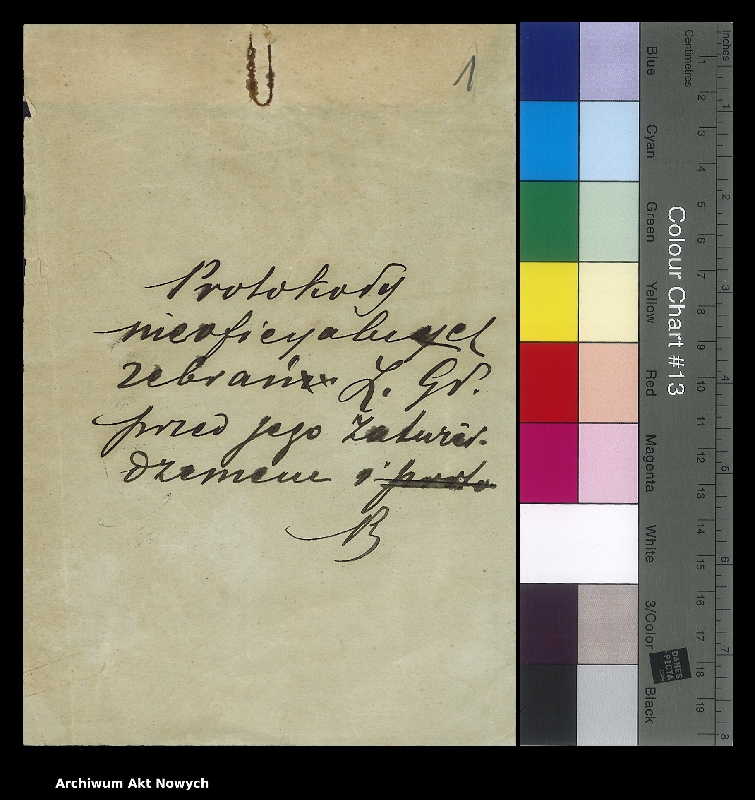 1
Protokoły
nieoficyalnych
zebrań Z. Gł.
przed jego zatwier-
dzeniem i proto
B
Blue
Cyan
Green
Yellow
Red
Magenta
White
3/Color
Black
Colour Chart #13
Centimetres
Inches
1 2 3 4 5 6 7 8 9 10 11 12 13 14 15 16 17 18 19
1 2 3 4 5 6 7 8
DANES
PICTA
.COM
Archiwum Akt Nowych